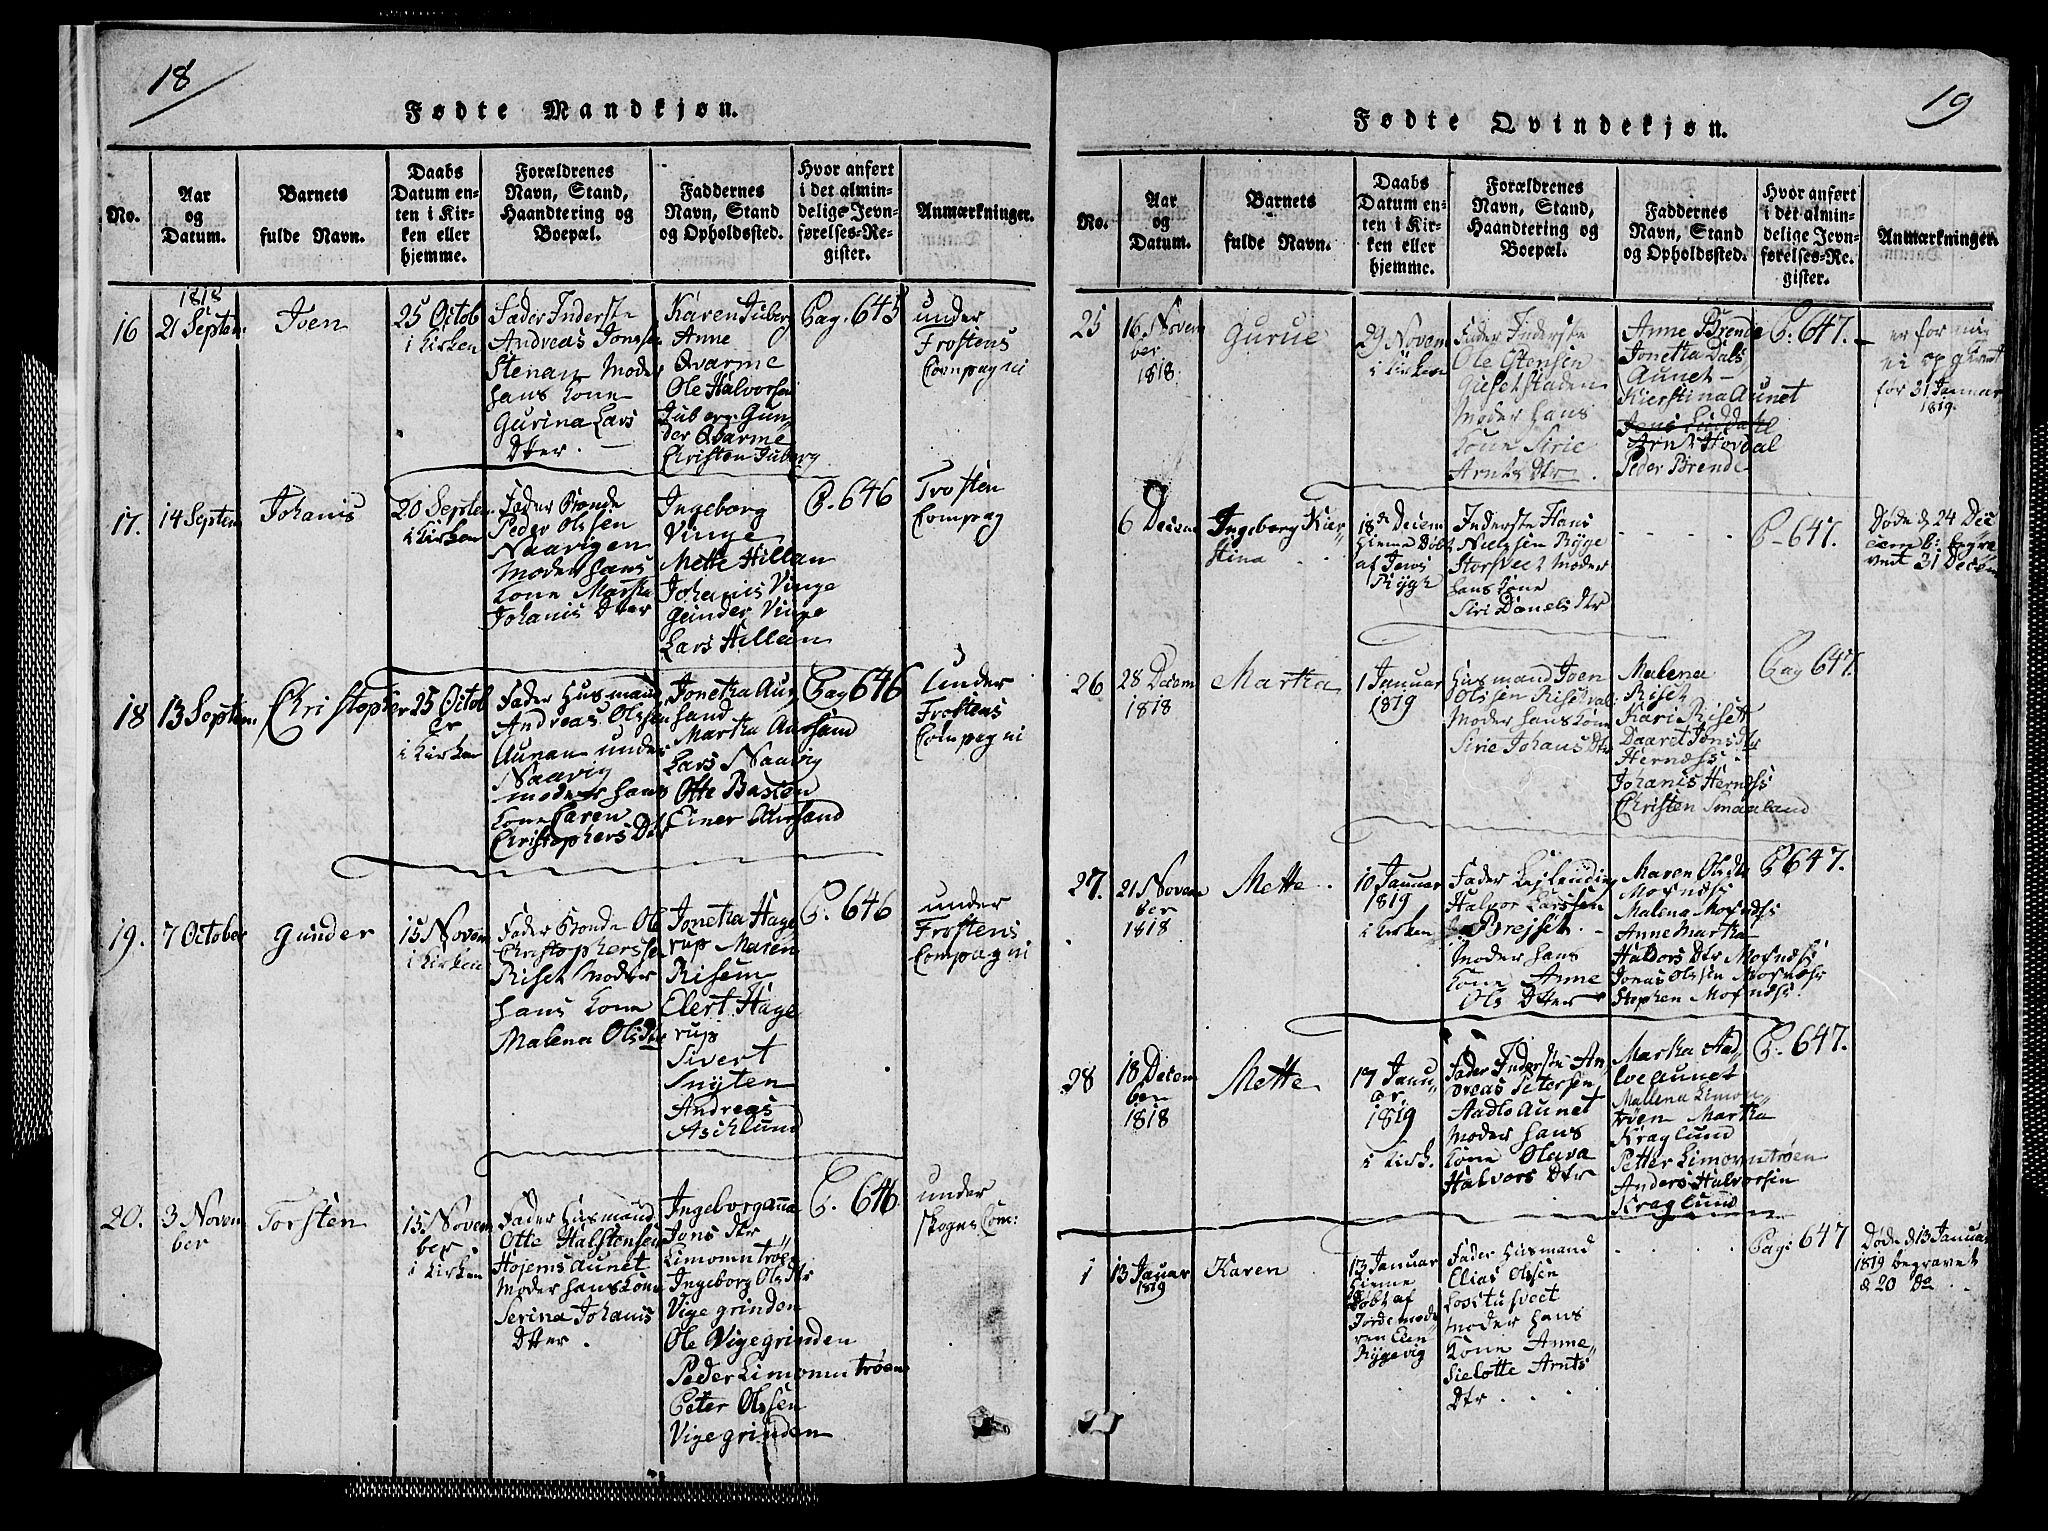 18
Fødte Mandkjøn.
No.
Aar
og
Datum.
Barnets
fulde Navn.
Daabs
Datum en-
ten i Kir-
ken eller
hjemme.
Forældrenes
Navn, Stand,
Haandtering og
Boepæl.
Faddernes
Navn, Stand
og Opholdssted.
Hvor anført
i det almin-
delige Jevn-
førelses-Re-
gister.
Anmærkninger.
1818
16
21 Septem
Joen
25 Octob
i Kirken
Fader Inderste
Andreas Jonssen
Stenan Moder
hans Kone
Gurina Lars
Dtter.
Karen Juberg
Anne
Qvarme
Ole Halvorsen
Juberg. Gun-
der Qvarme
Christen Juberg
Pag. 645
under
Frostens
Compagni
17.
14 Septem
Johanis
20 Septem
i Kirken
Fader Bonde
Peder Olssen
Naavigen
Moder hans
Kone Martha
Johanis Dtter
Ingeborg
Vinge
Mette Hillan
Johanis Vinge
Gunder Vinge
Lars Hillan
P. 646
Frosten
Compag
18
13 Septem
Christopher
25 Octob
er
i Kirken
Fader Husmand
Andreas Olssen
Aunan under
Naavig
Moder hans
Kone Karen
Christophers Dtr
Jonetha Aur
sand
Martha Aursand
Lars Naavig
Otte Basten
Einer Aursand
Pag 646
Under
Frostens
Compagni
19.
7 October
Gunder
15 Novem
i Kirken
Fader Bonde Ol
Christopherssen
Riset Moder
hans Kone
Malena Olsdtr
Jonetha Hage
rup Maren
Risem
Elert Hage
rup
Sivert
Snyten
Andreas
Asklund
P. 646
under
Frostens
Compagni
20.
3 Novem
ber
Torsten
15 Novem
ber
i Kirken
Fader Husmand
Otte Halstensen
Hojemsaunet
Moder hans Kone
Serina Johanis
Dtter.
Ingeborganna
Jons Dtr
Limomntrøen
Ingeborg Ols Dtr
Vigegrinden
Ole Vigegrinden
Peder Limomntrøen
Peter Olssen
Vigegrinden
P. 646
under
Skogns Com:
19
Fødte Qvindekjøn.
No.
Aar
og
Datum.
Barnets
fulde Navn.
Daabs
Datum en-
ten i Kir-
ken eller
hjemme.
Forældrenes
Navn, Stand,
Haandtering og
Boepæl.
Faddernes
Navn, Stand
og Opholdssted.
Hvor anført
i det almin-
delige Jevn-
førelses-Re-
gister.
Anmærkninger.
25
16 Novem
ber
1818
Gurue
29 Novem
i Kirken
Fader Inderste
Ole Stensen
Gietstaden
Moder hans
Kone Sirie
Arnts Dtr
Anne Brende
Jonetha Dals
Aunet
Kierstina Aunet
Jens Liddahl
Arnt Hovdal
Peder Brende
P. 647.
er for mig
ei opgivet
før 31 Januar
1819.
6 Decem
Ingeborg Kier
stina
18de Decem
hieme Døbt
af Jens
Rygh
Inderste Hans
Nielssen Rygge
Storsvet Moder
hans Kone
Siri Daniels Dtr
P. 647.
Døde d 24 Dec
cemb: begra
vet 31 Decem
26
28 Decem
1818
Martha
1 Januar
1819
Husmand Joen
Olssen Risetval:
Moder hans Kone
Sirie Johans Dtr
Malena
Riset
Kari Risett
Daaret Jons Dtr
Hernæss
Johanis Hernæss
Christen Smaaland
Pag 647.
27.
21 Novem
ber
1818
Mette
10 Januar
1819
i Kirken
Fader Lejlændin
Halvor Larssen
Brejset
Moder hans
Kone Anne
Ols Dtter
Maren Olsdtr
Mosnæss
Malena Mosnæss
Anne Martha
Halvors Dtr Mosnæss
Jonas Olssen Mosnæss
Stephen Mosnæss.
P 647.
28
18 Decem
ber
1818
Mette
17 Janu
ar
1819
i Kirk.
Fader Inderste An
dreas Petersen
Aadloaunet
Moder hans
Kone Oluva
Halvors Dtr
Martha Aad
loeaunet
Mallena Limom
trøen Martha
Kraglund
Petter Limomntrøen
Anders Halvorsen
Kraglund
P. 647.
1
13 Januar
1819
Karen
13 Januar
hieme
Døbt af
Jordemode
ren Elen
Rygevig
Fader Husmand
Elias Olssen
Lostusveet
Moder hans
Kone Anne
Sielotte Arnts
Dtr
Pag: 647
Døde d 13 Januar
1819 begravet
d 20 do